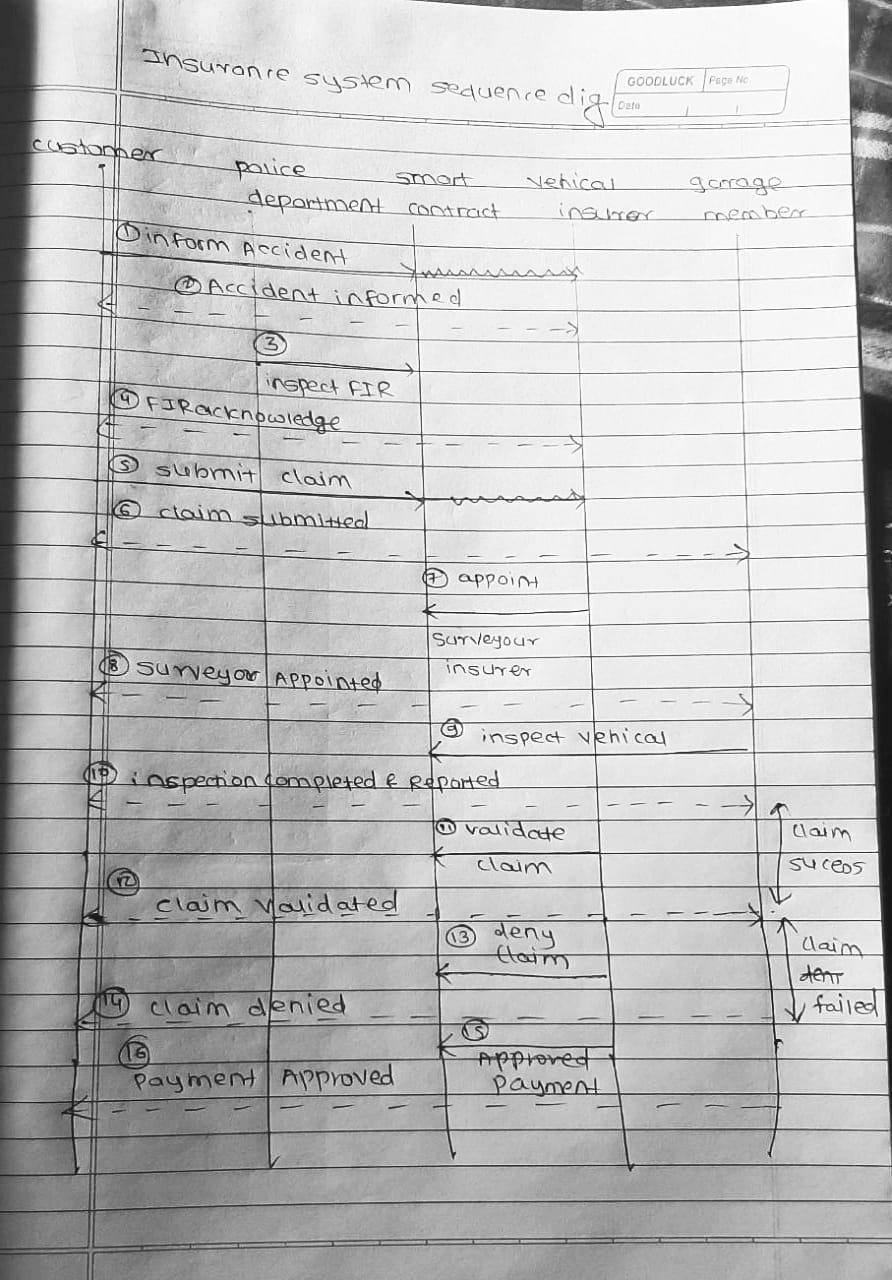 Insurance system sequence dig
GOODLUCK Page No.
Date
customer police smart vehical garage
department contract insurer member
① inform Accident
② Accident informed
③
inspect FIR
④ FIR acknowledge
⑤ submit claim
⑥ claim submitted
⑦ appoint
surveyour
insurer
⑧ surveyor Appointed
⑨ inspect vehical
⑩ inspection completed & Reported
⑪ validate claim
claim suceos
⑫
claim validated
⑬ deny claim
claim
claim
failed
⑭ claim denied
⑮
Approved
payment
⑯
payment Approved